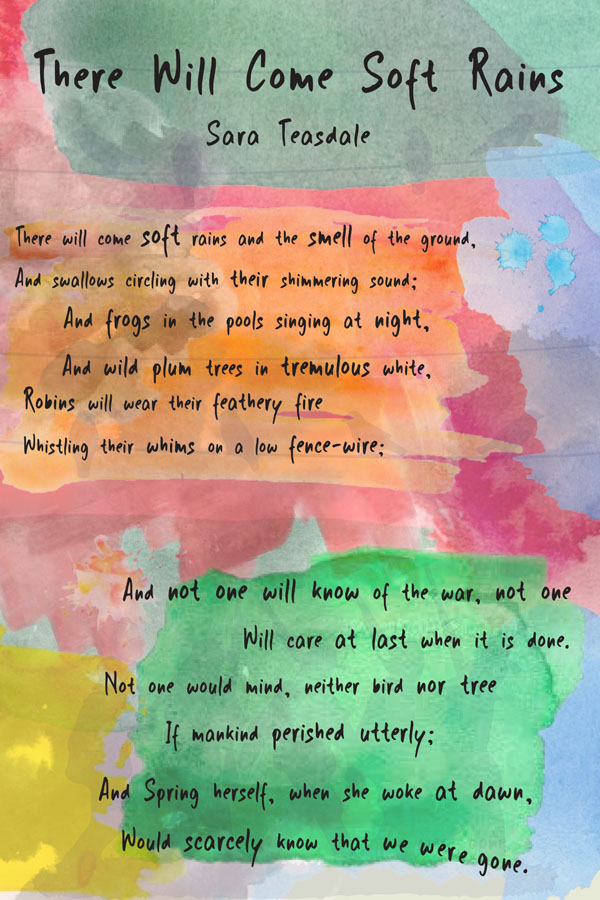 There Will Come Soft Rains
Sara Teasdale
There will come soft rains and the smell of the ground,
And swallows circling with their shimmering sound;
And frogs in the pools singing at night,
And wild plum trees in tremulous white,
Robins will wear their feathery fire
Whistling their whims on a low fence-wire;
And not one will know of the war, not one
Will care at last when it is done.
Not one would mind, neither bird nor tree
If mankind perished utterly;
And Spring herself, when she woke at dawn,
Would scarcely know that we were gone.